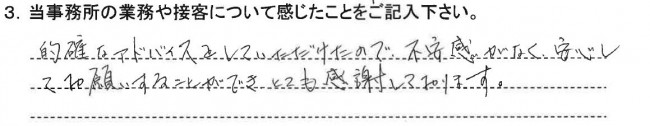 3. 当事務所の業務や接客について感じたことをご記入下さい。
的確なアドバイスをしていただけたので、不安感がなく、安心し
てお願いすることができとても感謝しております。